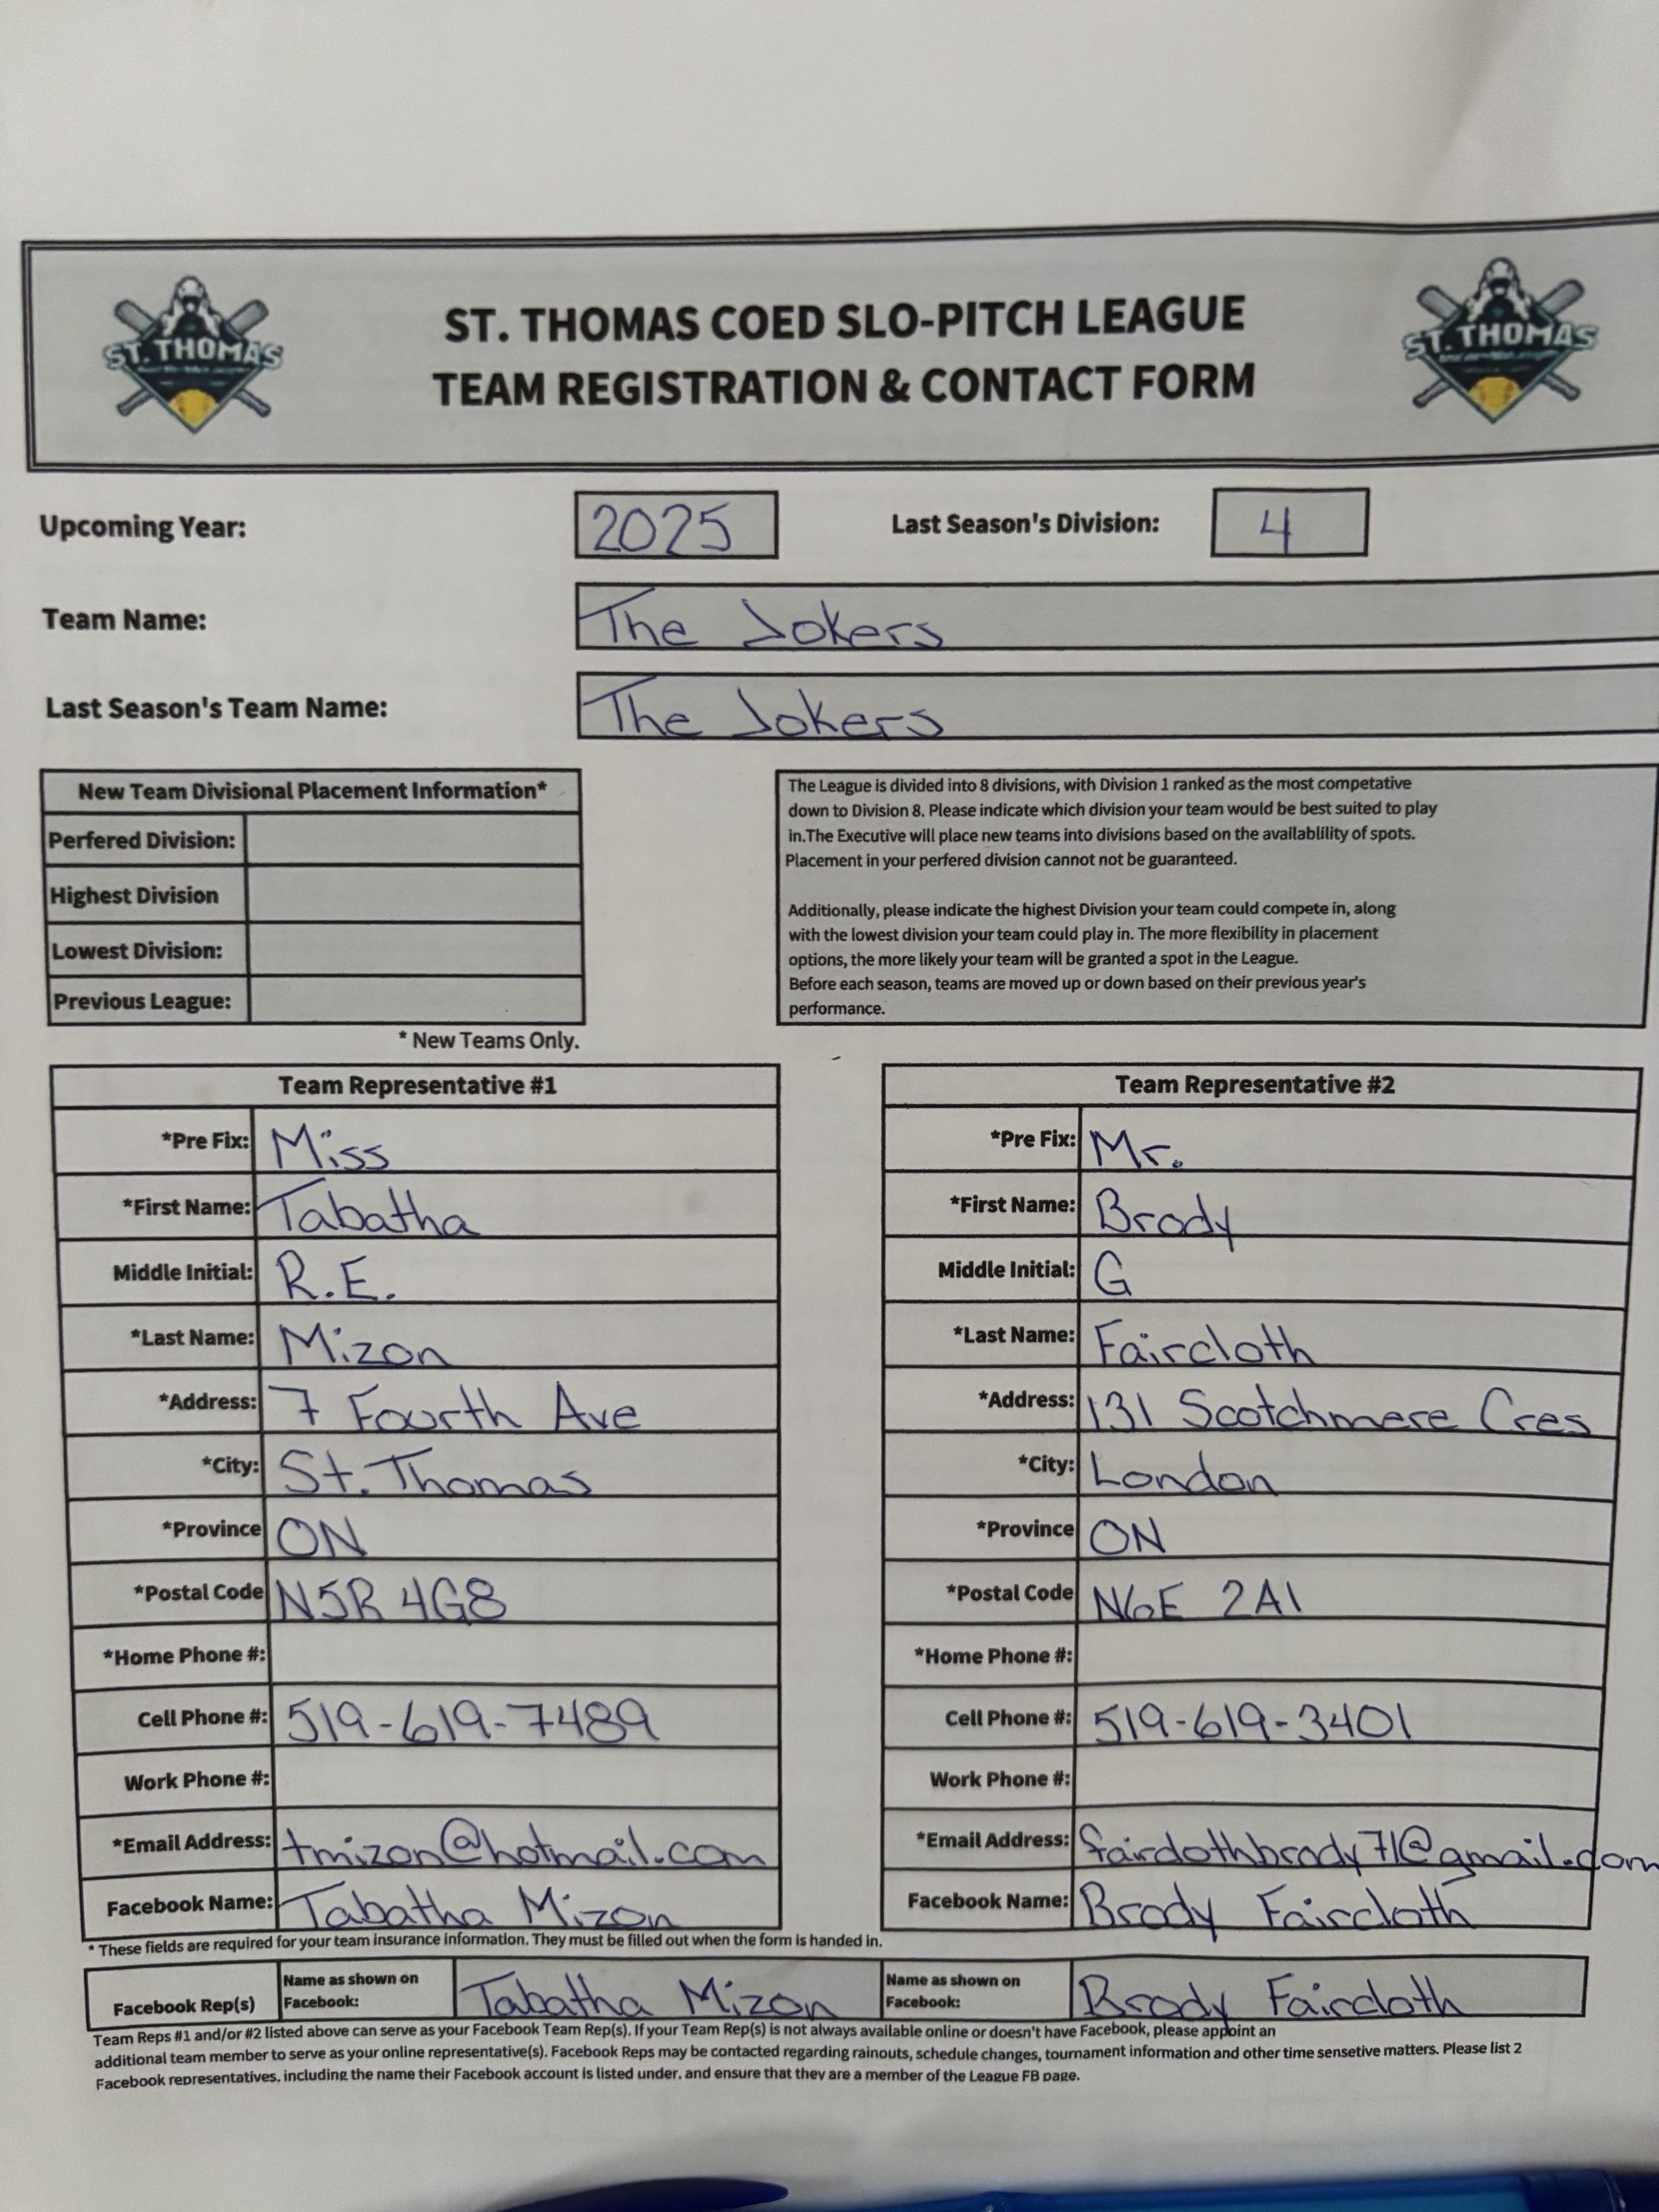 ST. THOMAS
ST. THOMAS
ST. THOMAS COED SLO-PITCH LEAGUE
TEAM REGISTRATION & CONTACT FORM
Upcoming Year: 2025 Last Season's Division: 4
Team Name: The Jokers
Last Season's Team Name: The Jokers
New Team Divisional Placement Information*
Perfered Division:
Highest Division
Lowest Division:
Previous League:
* New Teams Only.
The League is divided into 8 divisions, with Division 1 ranked as the most competative
down to Division 8. Please indicate which division your team would be best suited to play
in.The Executive will place new teams into divisions based on the availablility of spots.
Placement in your perfered division cannot not be guaranteed.
Additionally, please indicate the highest Division your team could compete in, along
with the lowest division your team could play in. The more flexibility in placement
options, the more likely your team will be granted a spot in the League.
Before each season, teams are moved up or down based on their previous year's
performance.
Team Representative #1
*Pre Fix: Miss
*First Name: Tabatha
Middle Initial: R.E.
*Last Name: Mizon
*Address: 7 Fourth Ave
*City: St. Thomas
*Province ON
*Postal Code N5R 4G8
*Home Phone #:
Cell Phone #: 519-619-7489
Work Phone #:
*Email Address: tmizon@hotmail.com
Facebook Name: Tabatha Mizon
Team Representative #2
*Pre Fix: Mr.
*First Name: Brody
Middle Initial: G
*Last Name: Faircloth
*Address: 131 Scotchmere Cres
*City: London
*Province ON
*Postal Code N6E 2A1
*Home Phone #:
Cell Phone #: 519-619-3401
Work Phone #:
*Email Address: fairclothbrody71@gmail.com
Facebook Name: Brody Faircloth
* These fields are required for your team insurance information. They must be filled out when the form is handed in.
Facebook Rep(s)
Name as shown on
Facebook: Tabatha Mizon
Name as shown on
Facebook: Brody Faircloth
Team Reps #1 and/or #2 listed above can serve as your Facebook Team Rep(s). If your Team Rep(s) is not always available online or doesn't have Facebook, please appoint an
additional team member to serve as your online representative(s). Facebook Reps may be contacted regarding rainouts, schedule changes, tournament information and other time sensetive matters. Please list 2
Facebook representatives, including the name their Facebook account is listed under, and ensure that they are a member of the League FB page.